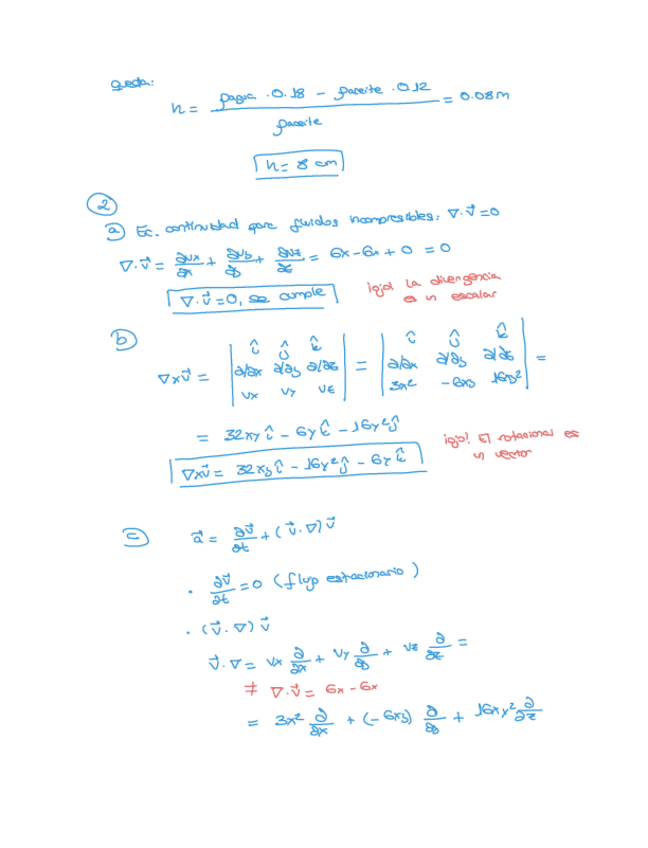 queda:
h = (ρagua · 0.18 − ρaceite · 0.12) / ρaceite = 0.08m
h = 8 cm
2
a) Ec. continuidad para fluidos incompresibles: ∇·v⃗ = 0
∇·v⃗ = ∂vx/∂x + ∂vy/∂y + ∂vz/∂z = 6x − 6x + 0 = 0
∇·v⃗ = 0, se cumple
¡ojo! La divergencia
es un escalar
b
∇×v⃗ = | î ĵ k̂ | = | î ĵ k̂ | =
| ∂/∂x ∂/∂y ∂/∂z | | ∂/∂x ∂/∂y ∂/∂z |
| vx vy vz | | 3x² −6xy 16xy² |
= 32xy î − 6y k̂ − 16y² ĵ
∇×v⃗ = 32xy î − 16y² ĵ − 6y k̂
¡ojo! El rotacional es
un vector
c a⃗ = ∂v⃗/∂t + (v⃗·∇)v⃗
· ∂v⃗/∂t = 0 (flujo estacionario)
· (v⃗·∇)v⃗
v⃗·∇ = vx ∂/∂x + vy ∂/∂y + vz ∂/∂z =
≠ ∇·v⃗ = 6x − 6x
= 3x² ∂/∂x + (−6xy) ∂/∂y + 16xy² ∂/∂z